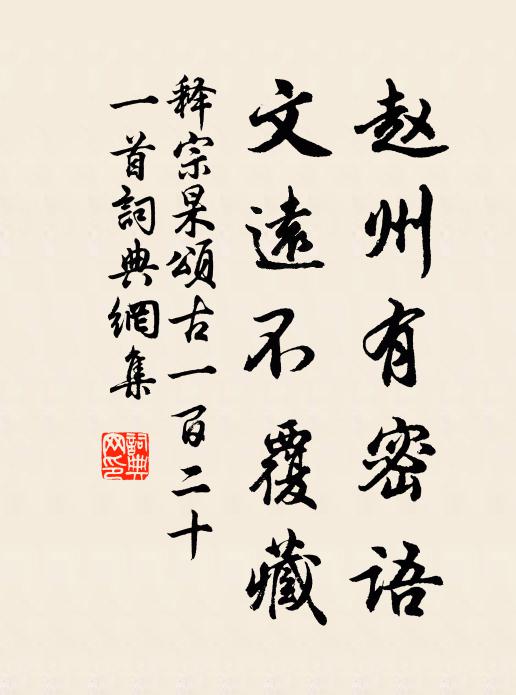 赵州有密语
文遠不覆藏
释宗杲頌古一百二十
一首詞典網集
詞典網印